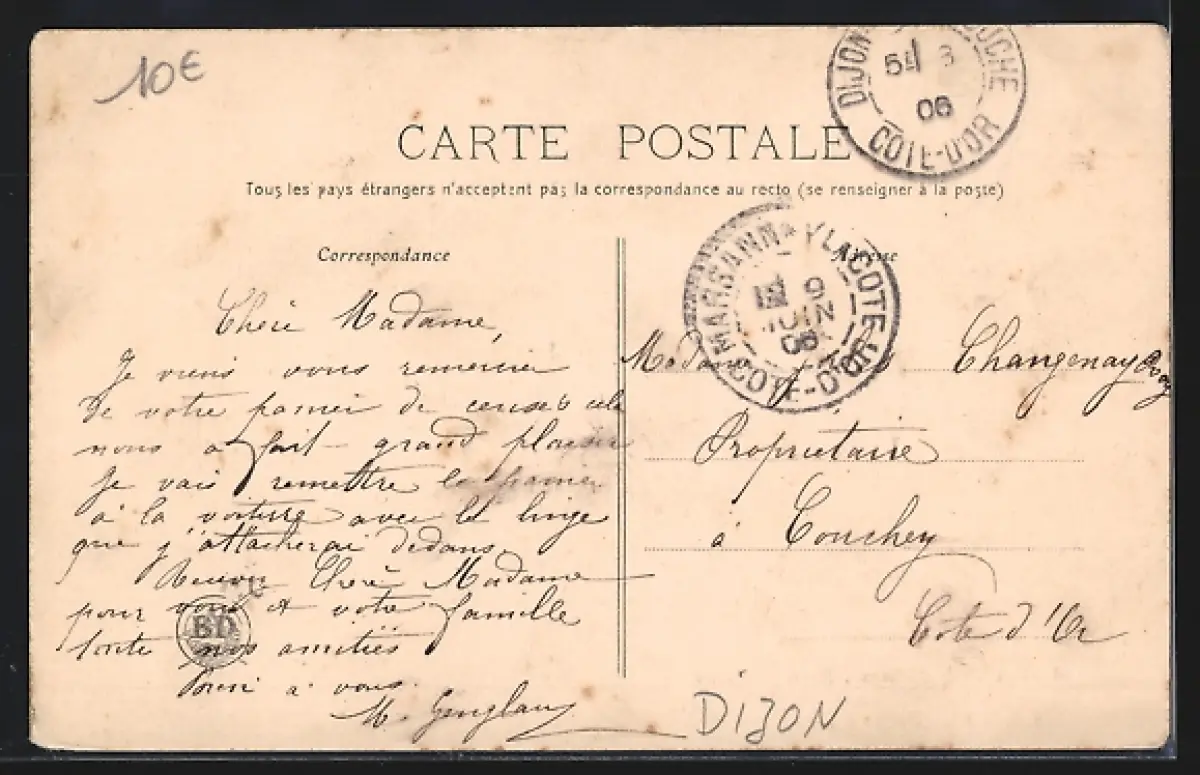 10€
DIJON OUCHE
5 3
06
COTE-D'OR
CARTE POSTALE
Tous les pays étrangers n'acceptent pas la correspondance au recto (se renseigner à la poste)
Correspondance
Adresse
MARSANNAY LA COTE
9
JUIN
06
COTE-D'OR
Chère Madame,
Je viens vous remercier
de votre panier de cerises cela
nous a fait grand plaisir
Je vais remettre le panier
à la voiture avec le linge
que j'attacherai dedans
Recevez Chère Madame
pour vous et votre famille
toute nos amitiés
BD
à vous
M.
Madame Changenay
Propriétaire
à Couchey
Cote d'Or
DIJON